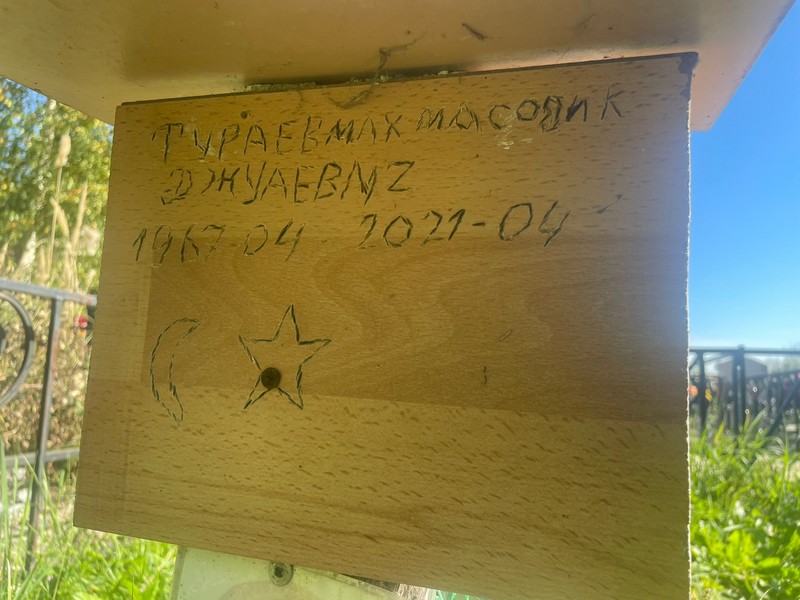 ТУРАЕВ МАХМАСОДИК
ДЖУАЕВИZ
1967-04 2021-04